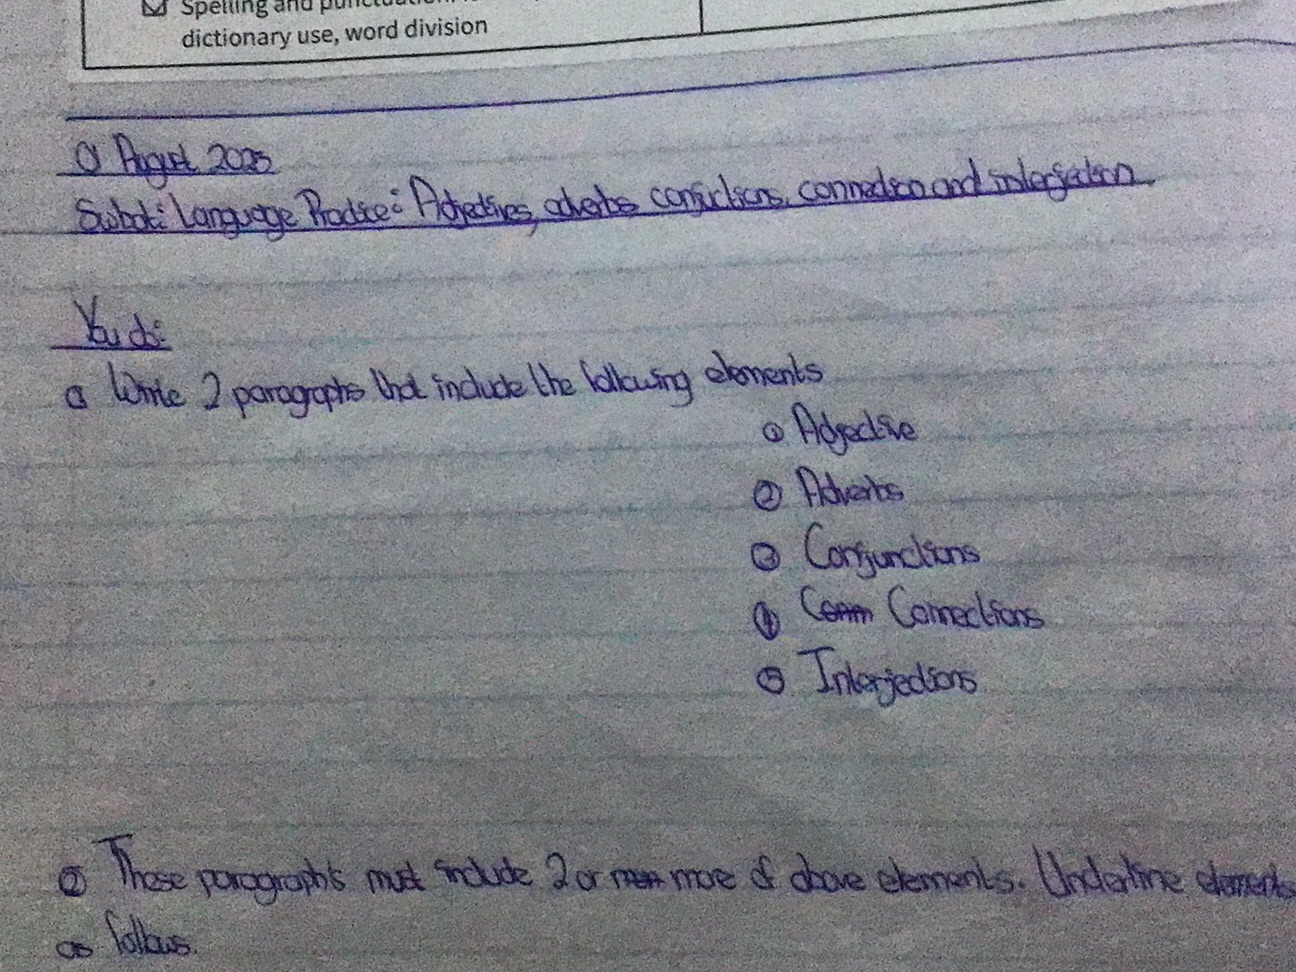 Spelling and punctuation:
dictionary use, word division
August 2025
Language Practice: Adjectives, adverbs conjuctions, connection and interjection.
You do:
Write 2 paragraphs that include the following elements
① Adjective
② Adverbs
③ Conjunctions
④ Conm Connections
⑤ Interjections
② These paragraphs must include 2 or more of above elements. Underline elements
as follows.